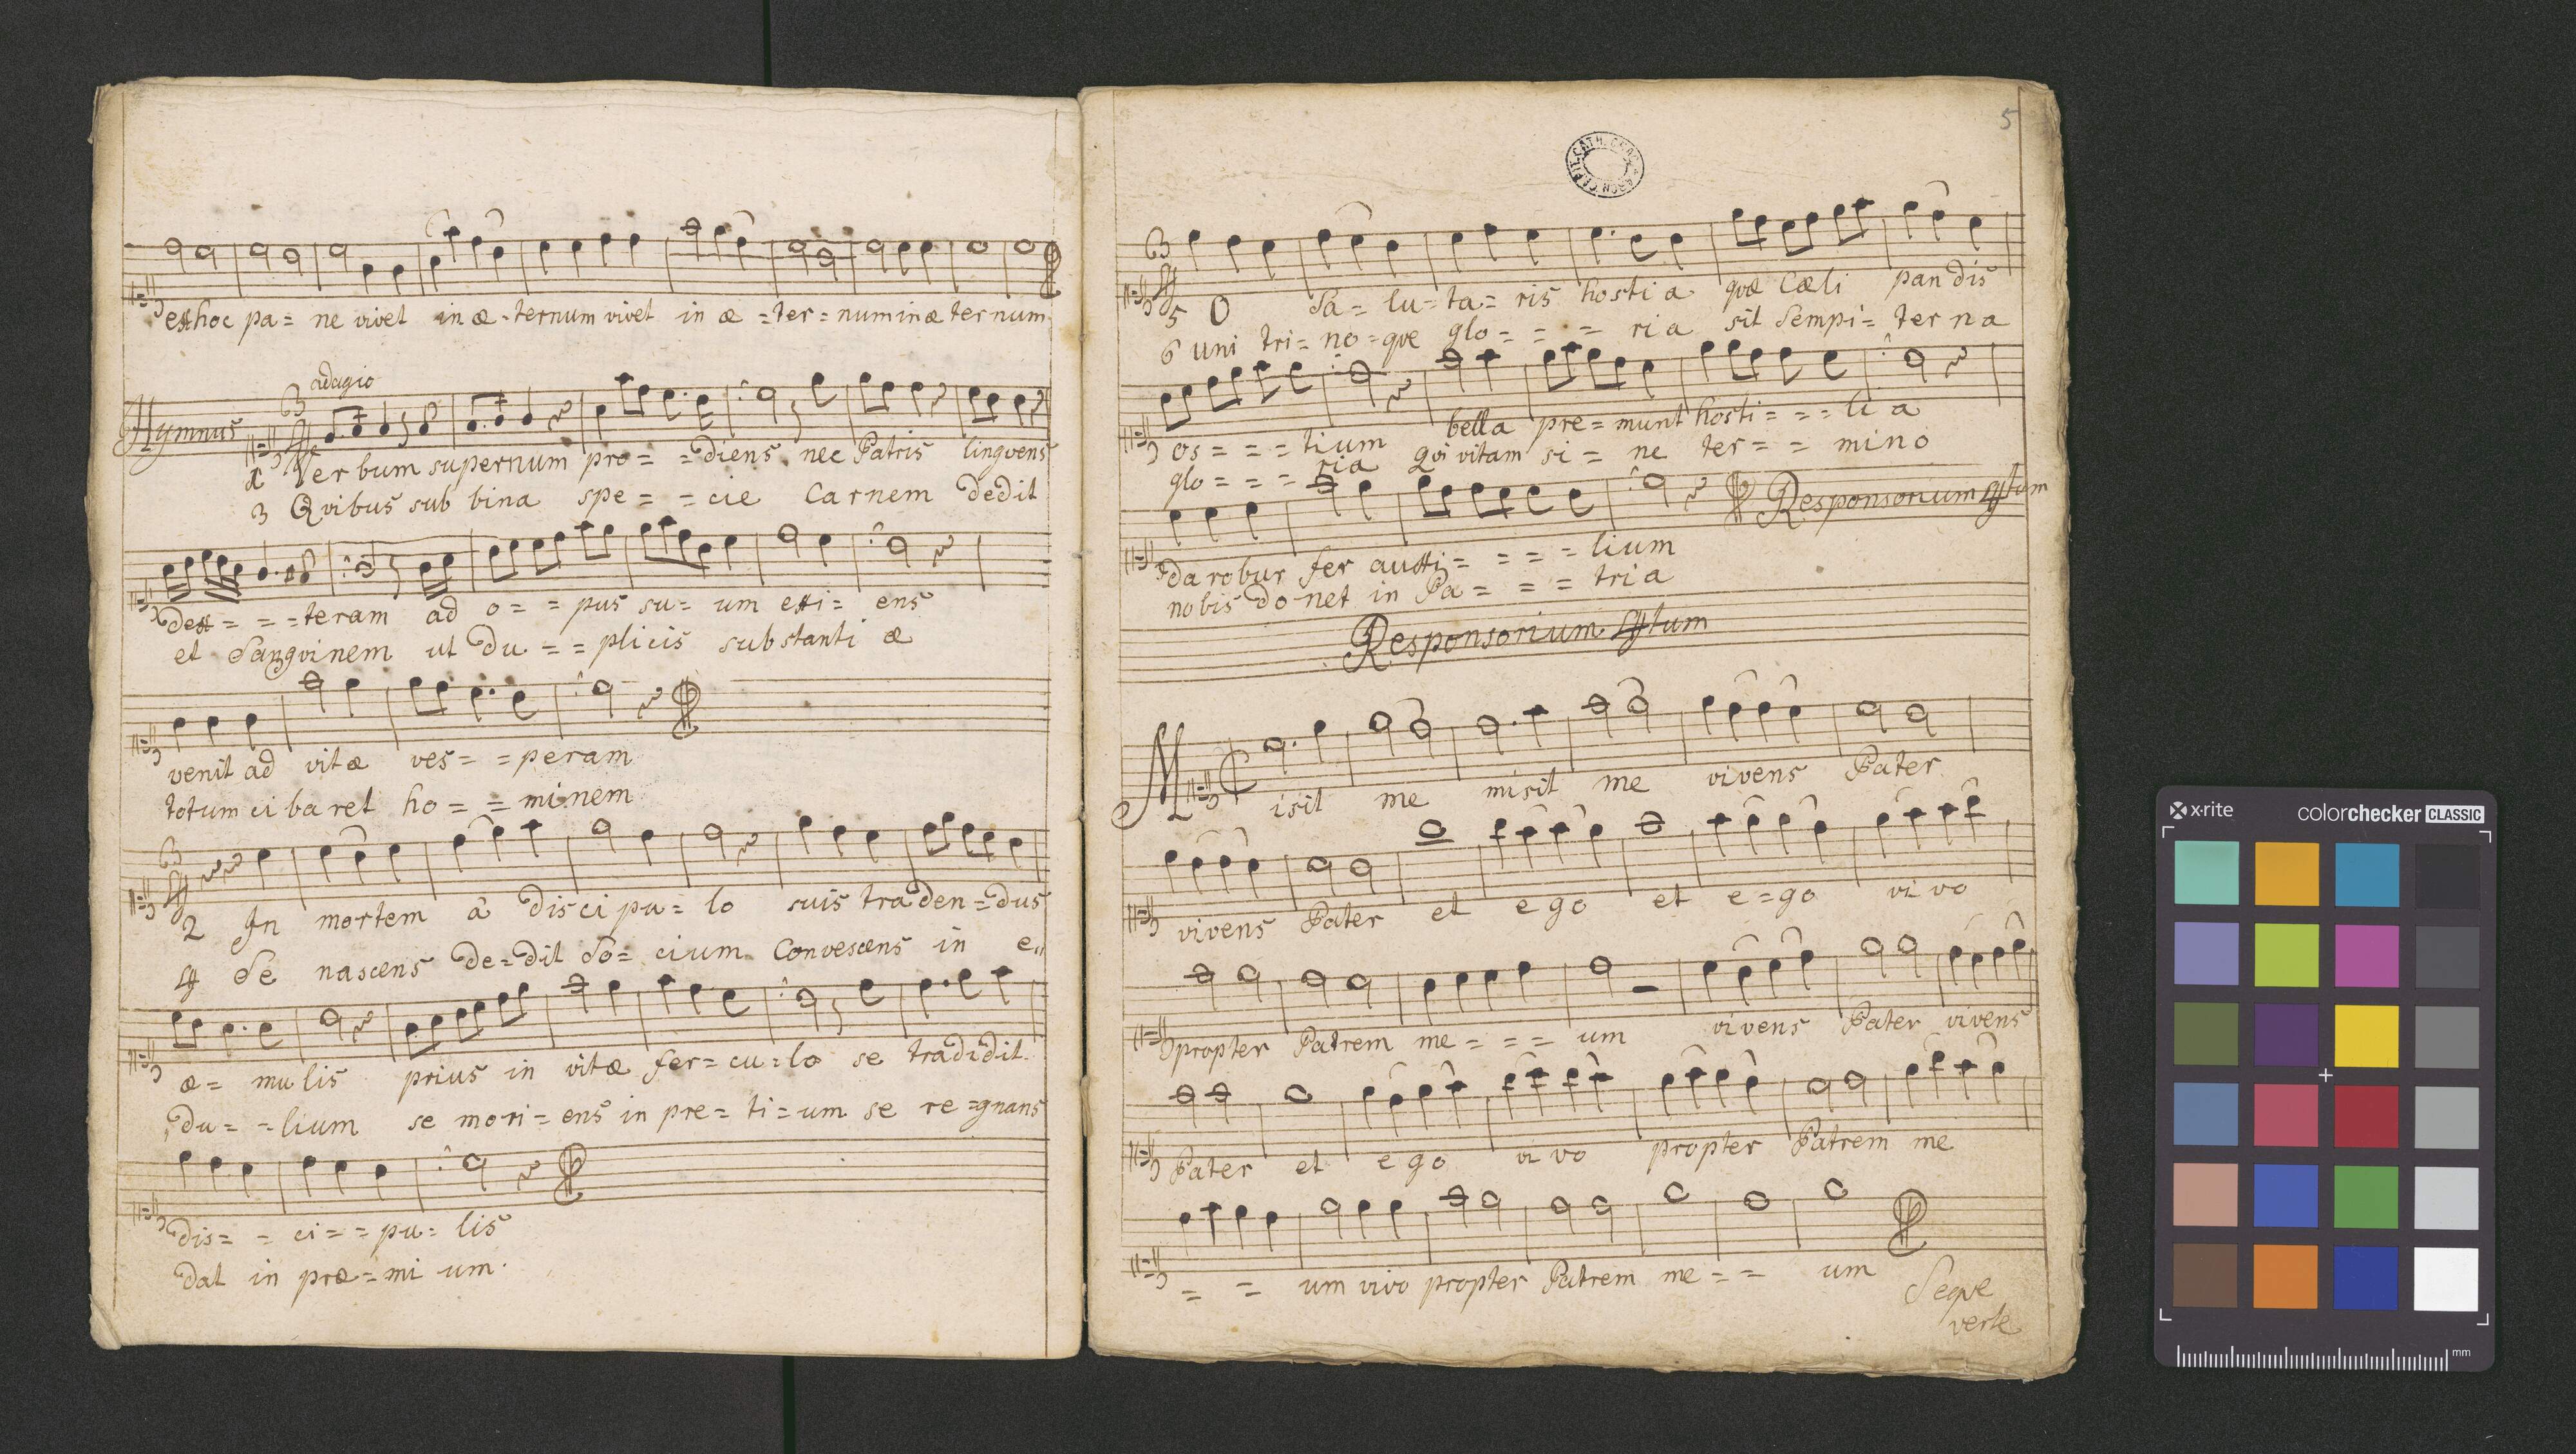 ex hoc pa = ne vivet in æ = ternum vivet in æ = ter = num in æ ternum.
adagio
Hymnus 3
1 Verbum supernum pro = = diens nec Patris lingvens
3 Qvibus sub bina spe = = cie Carnem Dedit
dex = = = teram ad o = = pus su = um exi = ens
et Sangvinem ut Du = = plicis substanti æ
venit ad vitæ ves = = peram
totum cibaret ho = = minem
3
2 In mortem à Discipu = lo suis traden = dus
4 Se nascens De = dit So = cium Convescens in e
æ = mulis prius in vitæ fer = cu = lo se tradidit.
du = = lium se mori = ens in pre = ti = um se re = gnans
Dis = = ci = = pu = lis
Dat in præ = mi um.
5
3
5 O Sa = lu = ta = ris hostia qvæ Cæli pandis
6 uni tri = no = qve glo = = = = ria sit Sempi = terna
os = = = tium bella pre = munt hosti = = = li a
glo = = = ria Qvi vitam si = ne ter = = mino
Responsorium 4tum
da robur fer auxi = = = = lium
nobis Donet in Pa = = = tria
Responsorium 4tum
Misit me misit me vivens Pater
vivens Pater et ego et e = go vivo
propter Patrem me = = = um vivens Pater vivens
Pater et ego vivo propter Patrem me
= = um vivo propter Patrem me = = um
Seqve
verte
x-rite colorchecker CLASSIC
mm